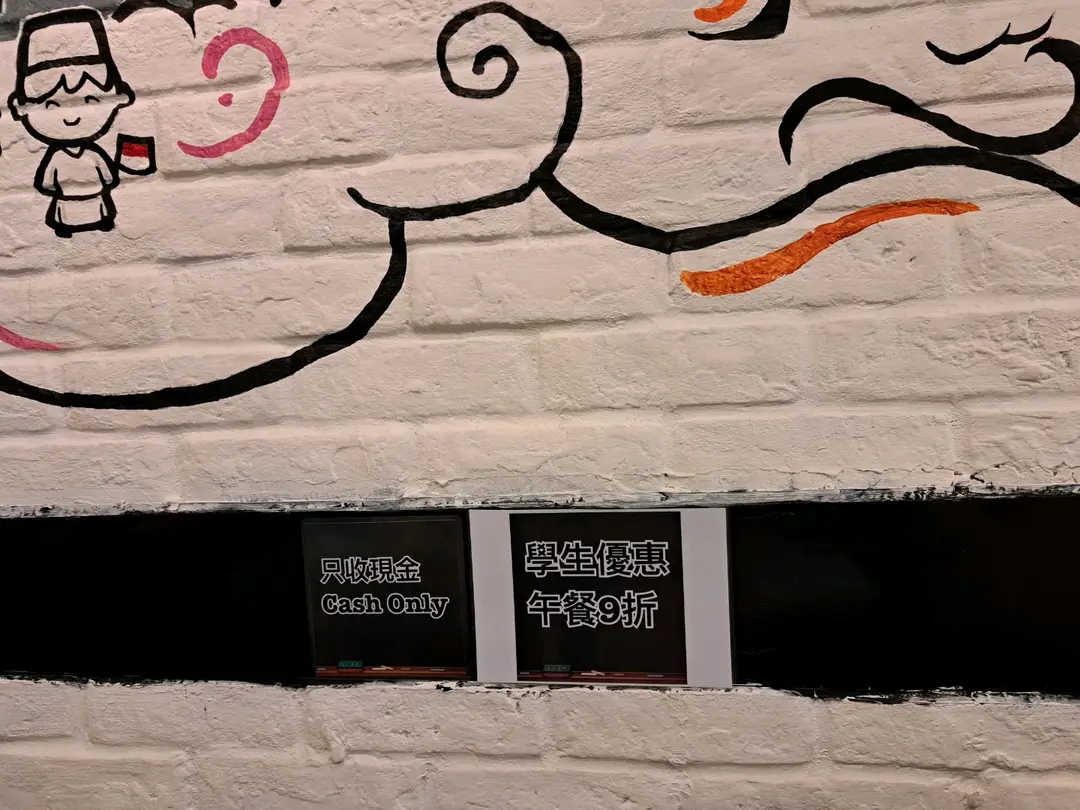 只收現金
Cash Only
學生優惠
午餐9折